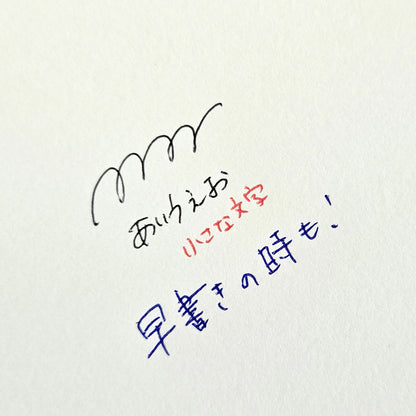 あいうえお
小さな文字
早書きの時も!